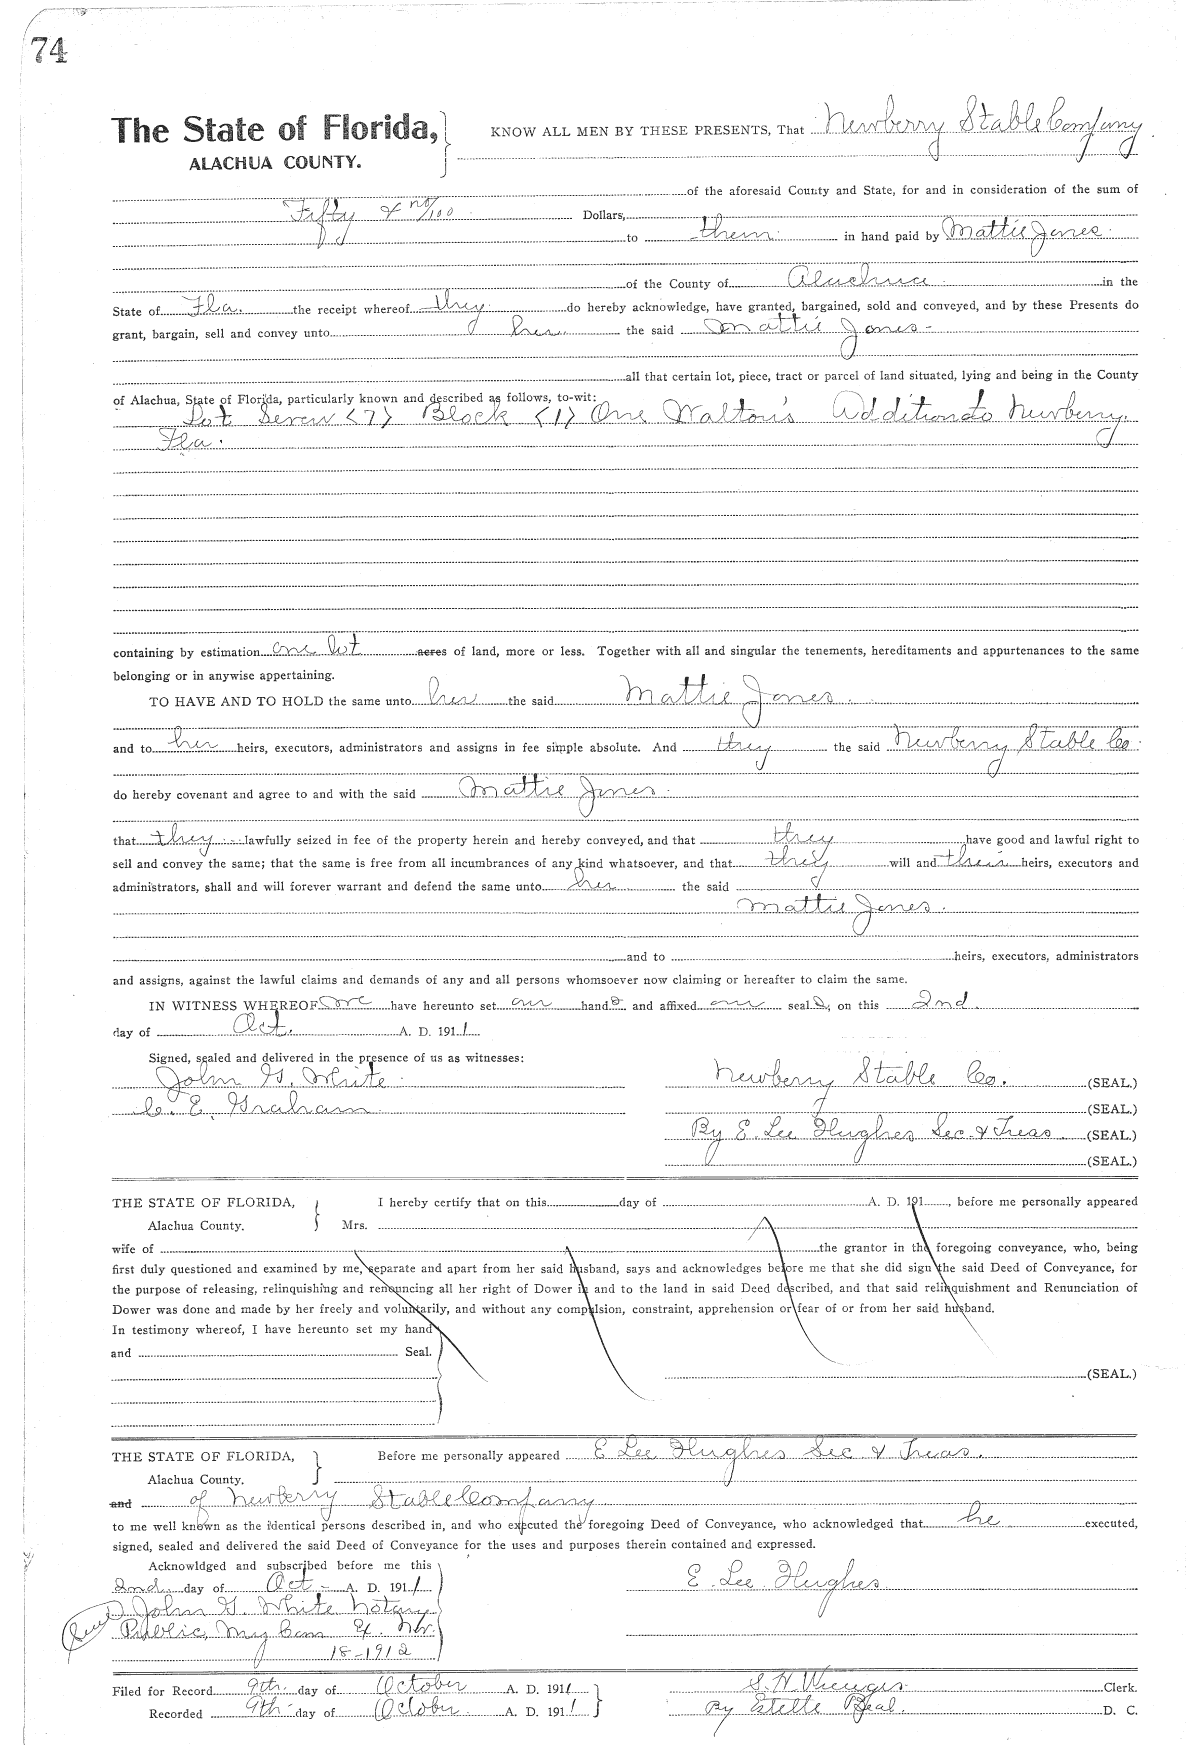 74
The State of Florida,
ALACHUA COUNTY.
KNOW ALL MEN BY THESE PRESENTS, That Newberry Stable Company
of the aforesaid County and State, for and in consideration of the sum of
Fifty & no/100 Dollars,
to them in hand paid by Mattie Jones
of the County of Alachua in the
State of Fla. the receipt whereof they do hereby acknowledge, have granted, bargained, sold and conveyed, and by these Presents do
grant, bargain, sell and convey unto her the said Mattie Jones
all that certain lot, piece, tract or parcel of land situated, lying and being in the County
of Alachua, State of Florida, particularly known and described as follows, to-wit:
Lot Seven (7) Block (1) One Walton's Addition to Newberry.
Fla.
containing by estimation one lot acres of land, more or less. Together with all and singular the tenements, hereditaments and appurtenances to the same
belonging or in anywise appertaining.
TO HAVE AND TO HOLD the same unto her the said Mattie Jones
and to her heirs, executors, administrators and assigns in fee simple absolute. And they the said Newberry Stable Co.
do hereby covenant and agree to and with the said Mattie Jones
that they lawfully seized in fee of the property herein and hereby conveyed, and that they have good and lawful right to
sell and convey the same; that the same is free from all incumbrances of any kind whatsoever, and that they will and their heirs, executors and
administrators, shall and will forever warrant and defend the same unto her the said
Mattie Jones.
and to heirs, executors, administrators
and assigns, against the lawful claims and demands of any and all persons whomsoever now claiming or hereafter to claim the same.
IN WITNESS WHEREOF we have hereunto set our hands and affixed our seals, on this 2nd
day of Oct. A. D. 1911
Signed, sealed and delivered in the presence of us as witnesses:
John G. White
Newberry Stable Co. (SEAL.)
C. E. Graham
(SEAL.)
By E. Lee Hughes Sec. & Treas. (SEAL.)
(SEAL.)
THE STATE OF FLORIDA,
Alachua County.
I hereby certify that on this day of A. D. 191 , before me personally appeared
Mrs.
wife of the grantor in the foregoing conveyance, who, being
first duly questioned and examined by me, separate and apart from her said husband, says and acknowledges before me that she did sign the said Deed of Conveyance, for
the purpose of releasing, relinquishing and renouncing all her right of Dower in and to the land in said Deed described, and that said relinquishment and Renunciation of
Dower was done and made by her freely and voluntarily, and without any compulsion, constraint, apprehension or fear of or from her said husband.
In testimony whereof, I have hereunto set my hand
and Seal.
(SEAL.)
THE STATE OF FLORIDA,
Alachua County.
Before me personally appeared E Lee Hughes Sec & Treas.
and of Newberry Stable Company
to me well known as the identical persons described in, and who executed the foregoing Deed of Conveyance, who acknowledged that he executed,
signed, sealed and delivered the said Deed of Conveyance for the uses and purposes therein contained and expressed.
Acknowldged and subscribed before me this
2nd day of Oct A. D. 1911
E. Lee Hughes
John G. White Notary
Public, My Com Ex. Nov.
18-1912
Filed for Record 9th. day of October A. D. 1911
Recorded 9th day of October A. D. 1911
S. H. Wienges Clerk.
By Estelle Beal. D. C.